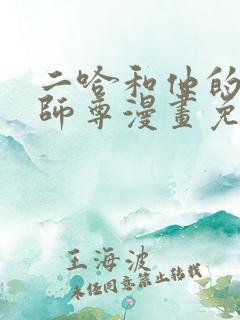 二哈和他的
師尊漫畫免
王海波
未经同意禁止转载